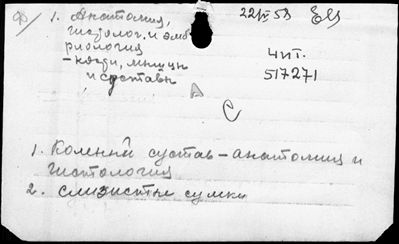 1. Анатомия,
гистолог. и эмб
риология
- кости, мышцы
и суставы
22/IV 58
Чит.
517271
А
С
1. Коленный сустав - анатомия и
гистология
2. слизистые сумки